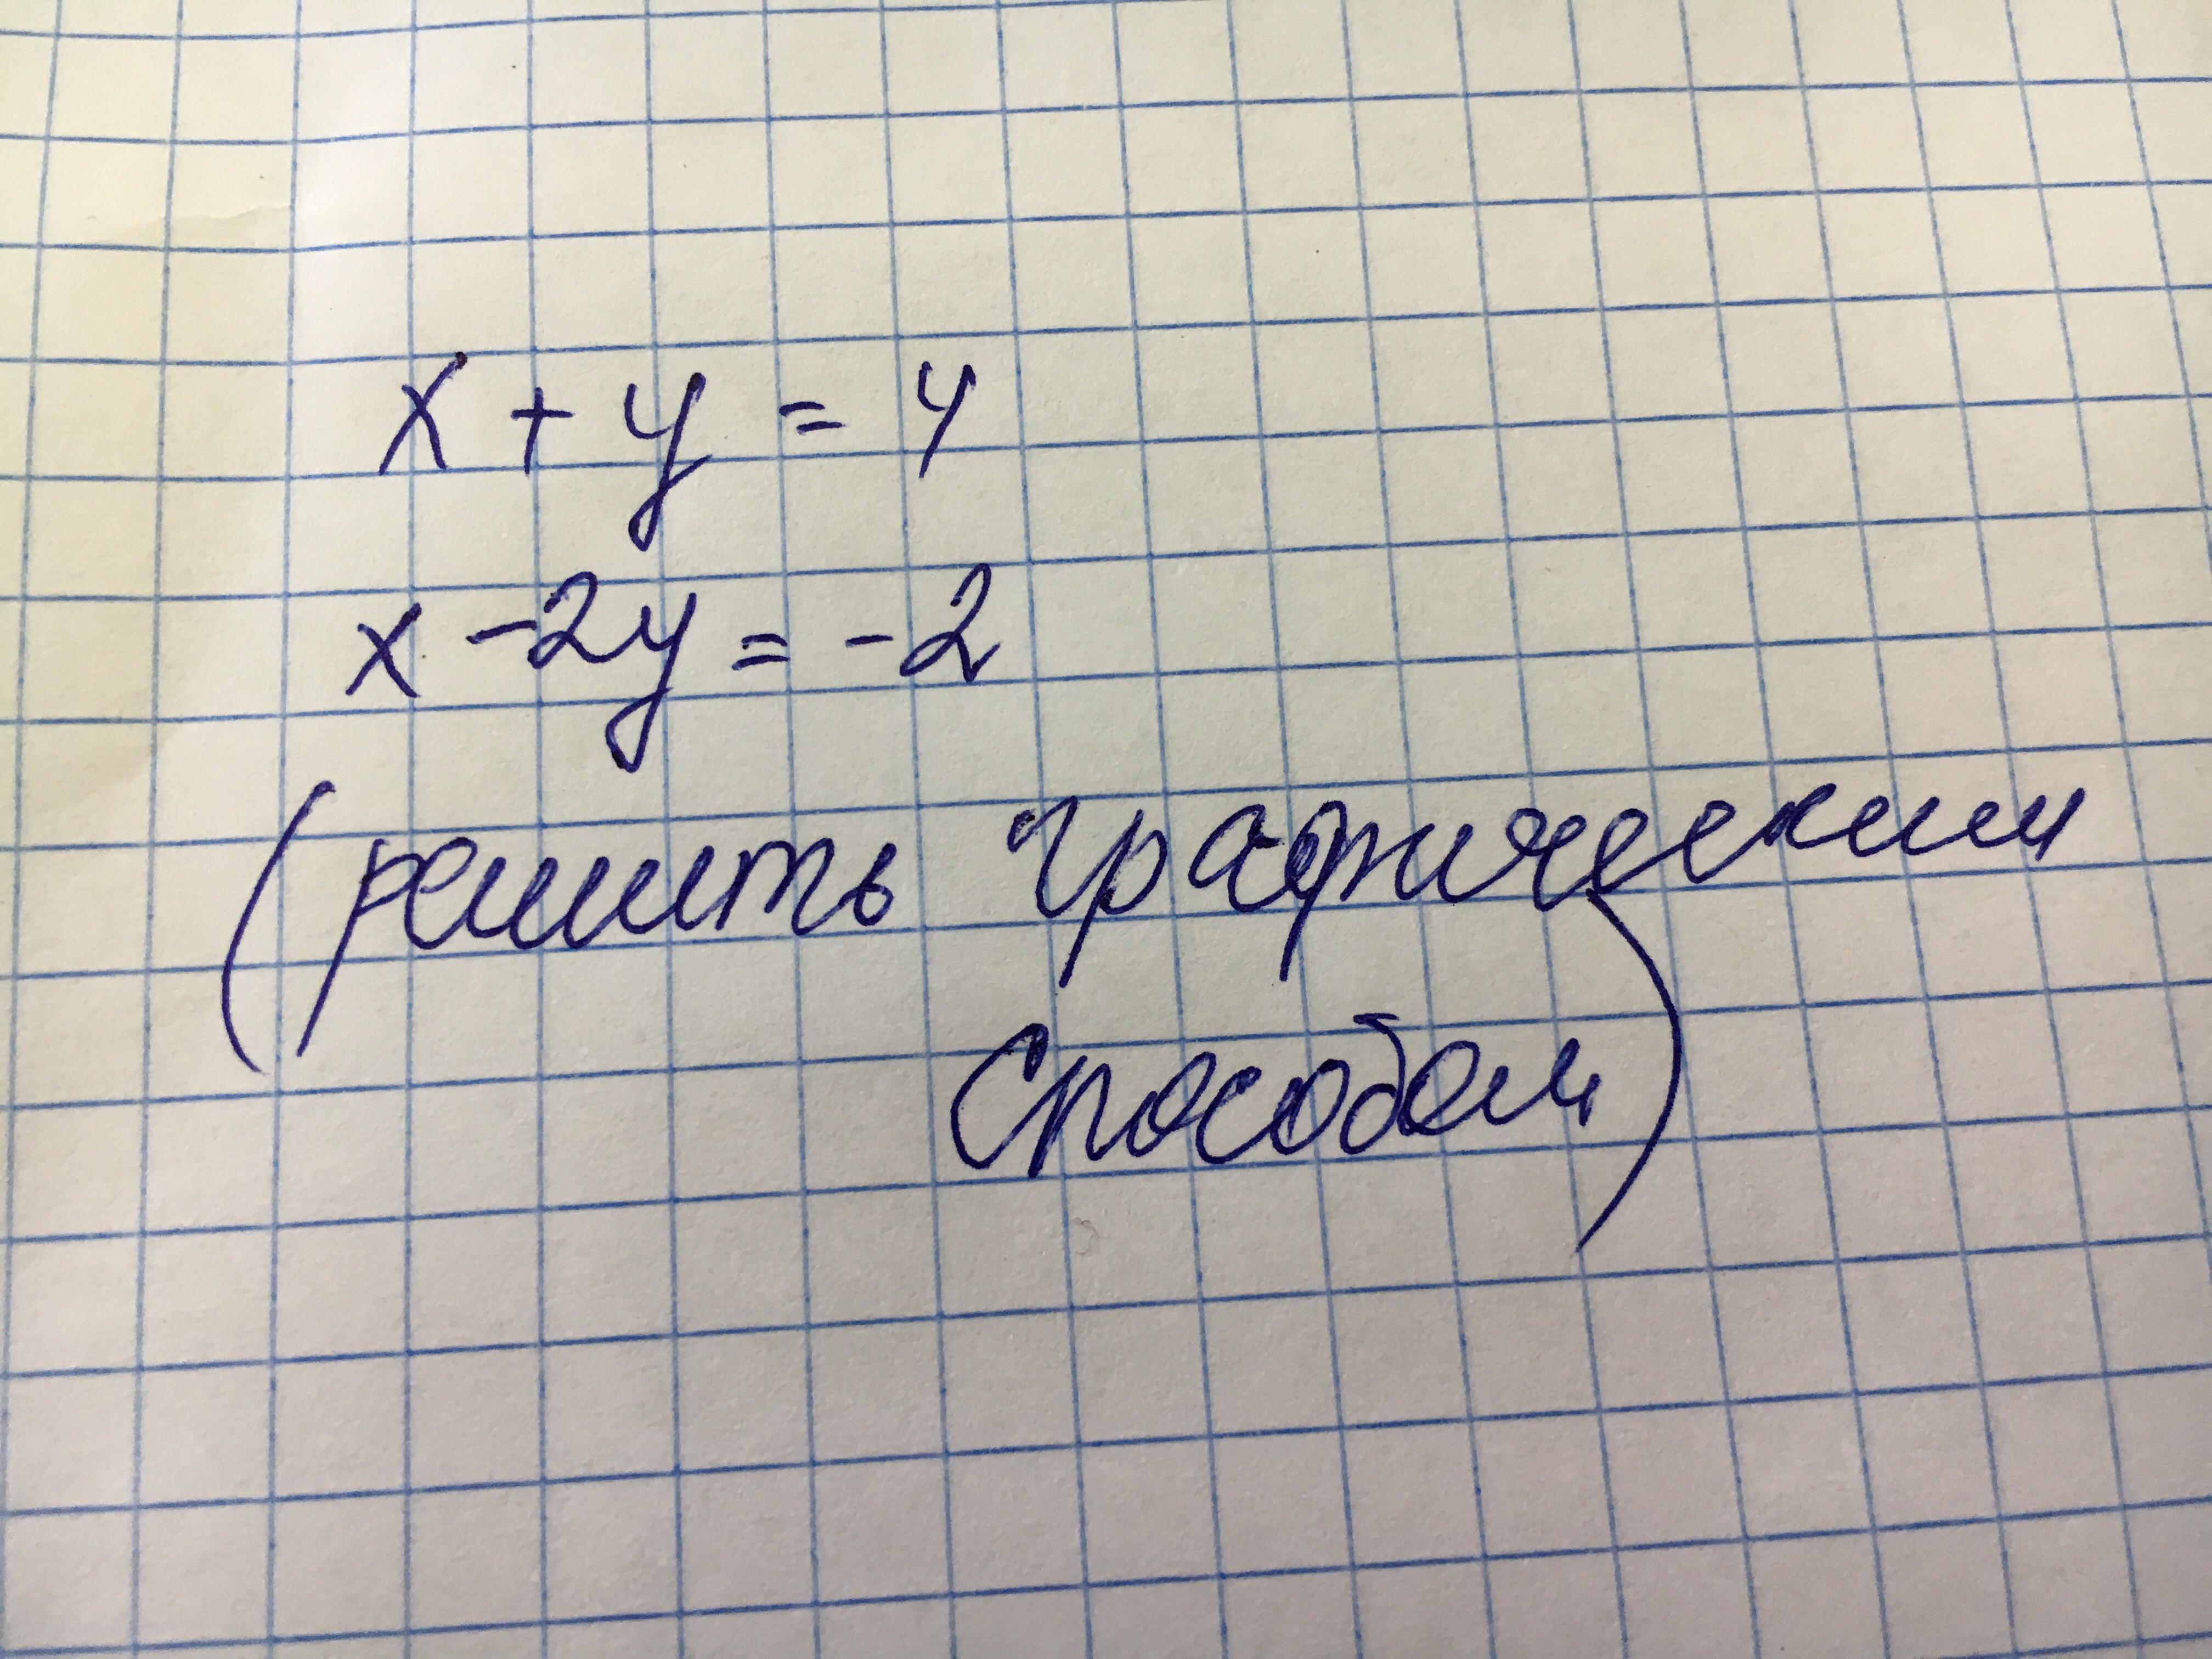 x + y = 4
x - 2y = -2
(решить графическим
способом)